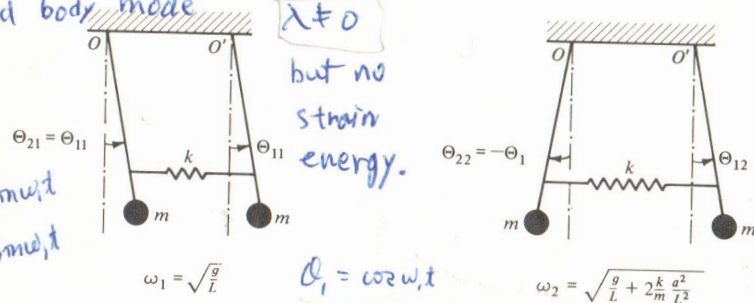 d body mode
λ ≠ 0
but no
strain
energy.
O O'
Θ21 = Θ11
Θ11
k
m m
ω1 = √g/L
θ1 = cos ω1t
O O'
Θ22 = −Θ1
Θ12
k
m m
ω2 = √g/L + 2 k/m a²/L²